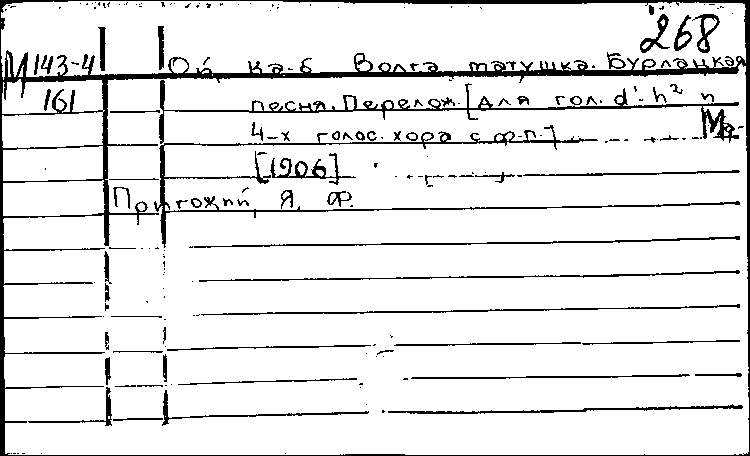 268
М 143-4 Ой, ка-б Волга матушка. Бурлацкая
161 песня. Перелож. [для гол. d'-h² и
4-х голос. хора с ф.п.]
[1906]
Пригожий, Я. Ф.